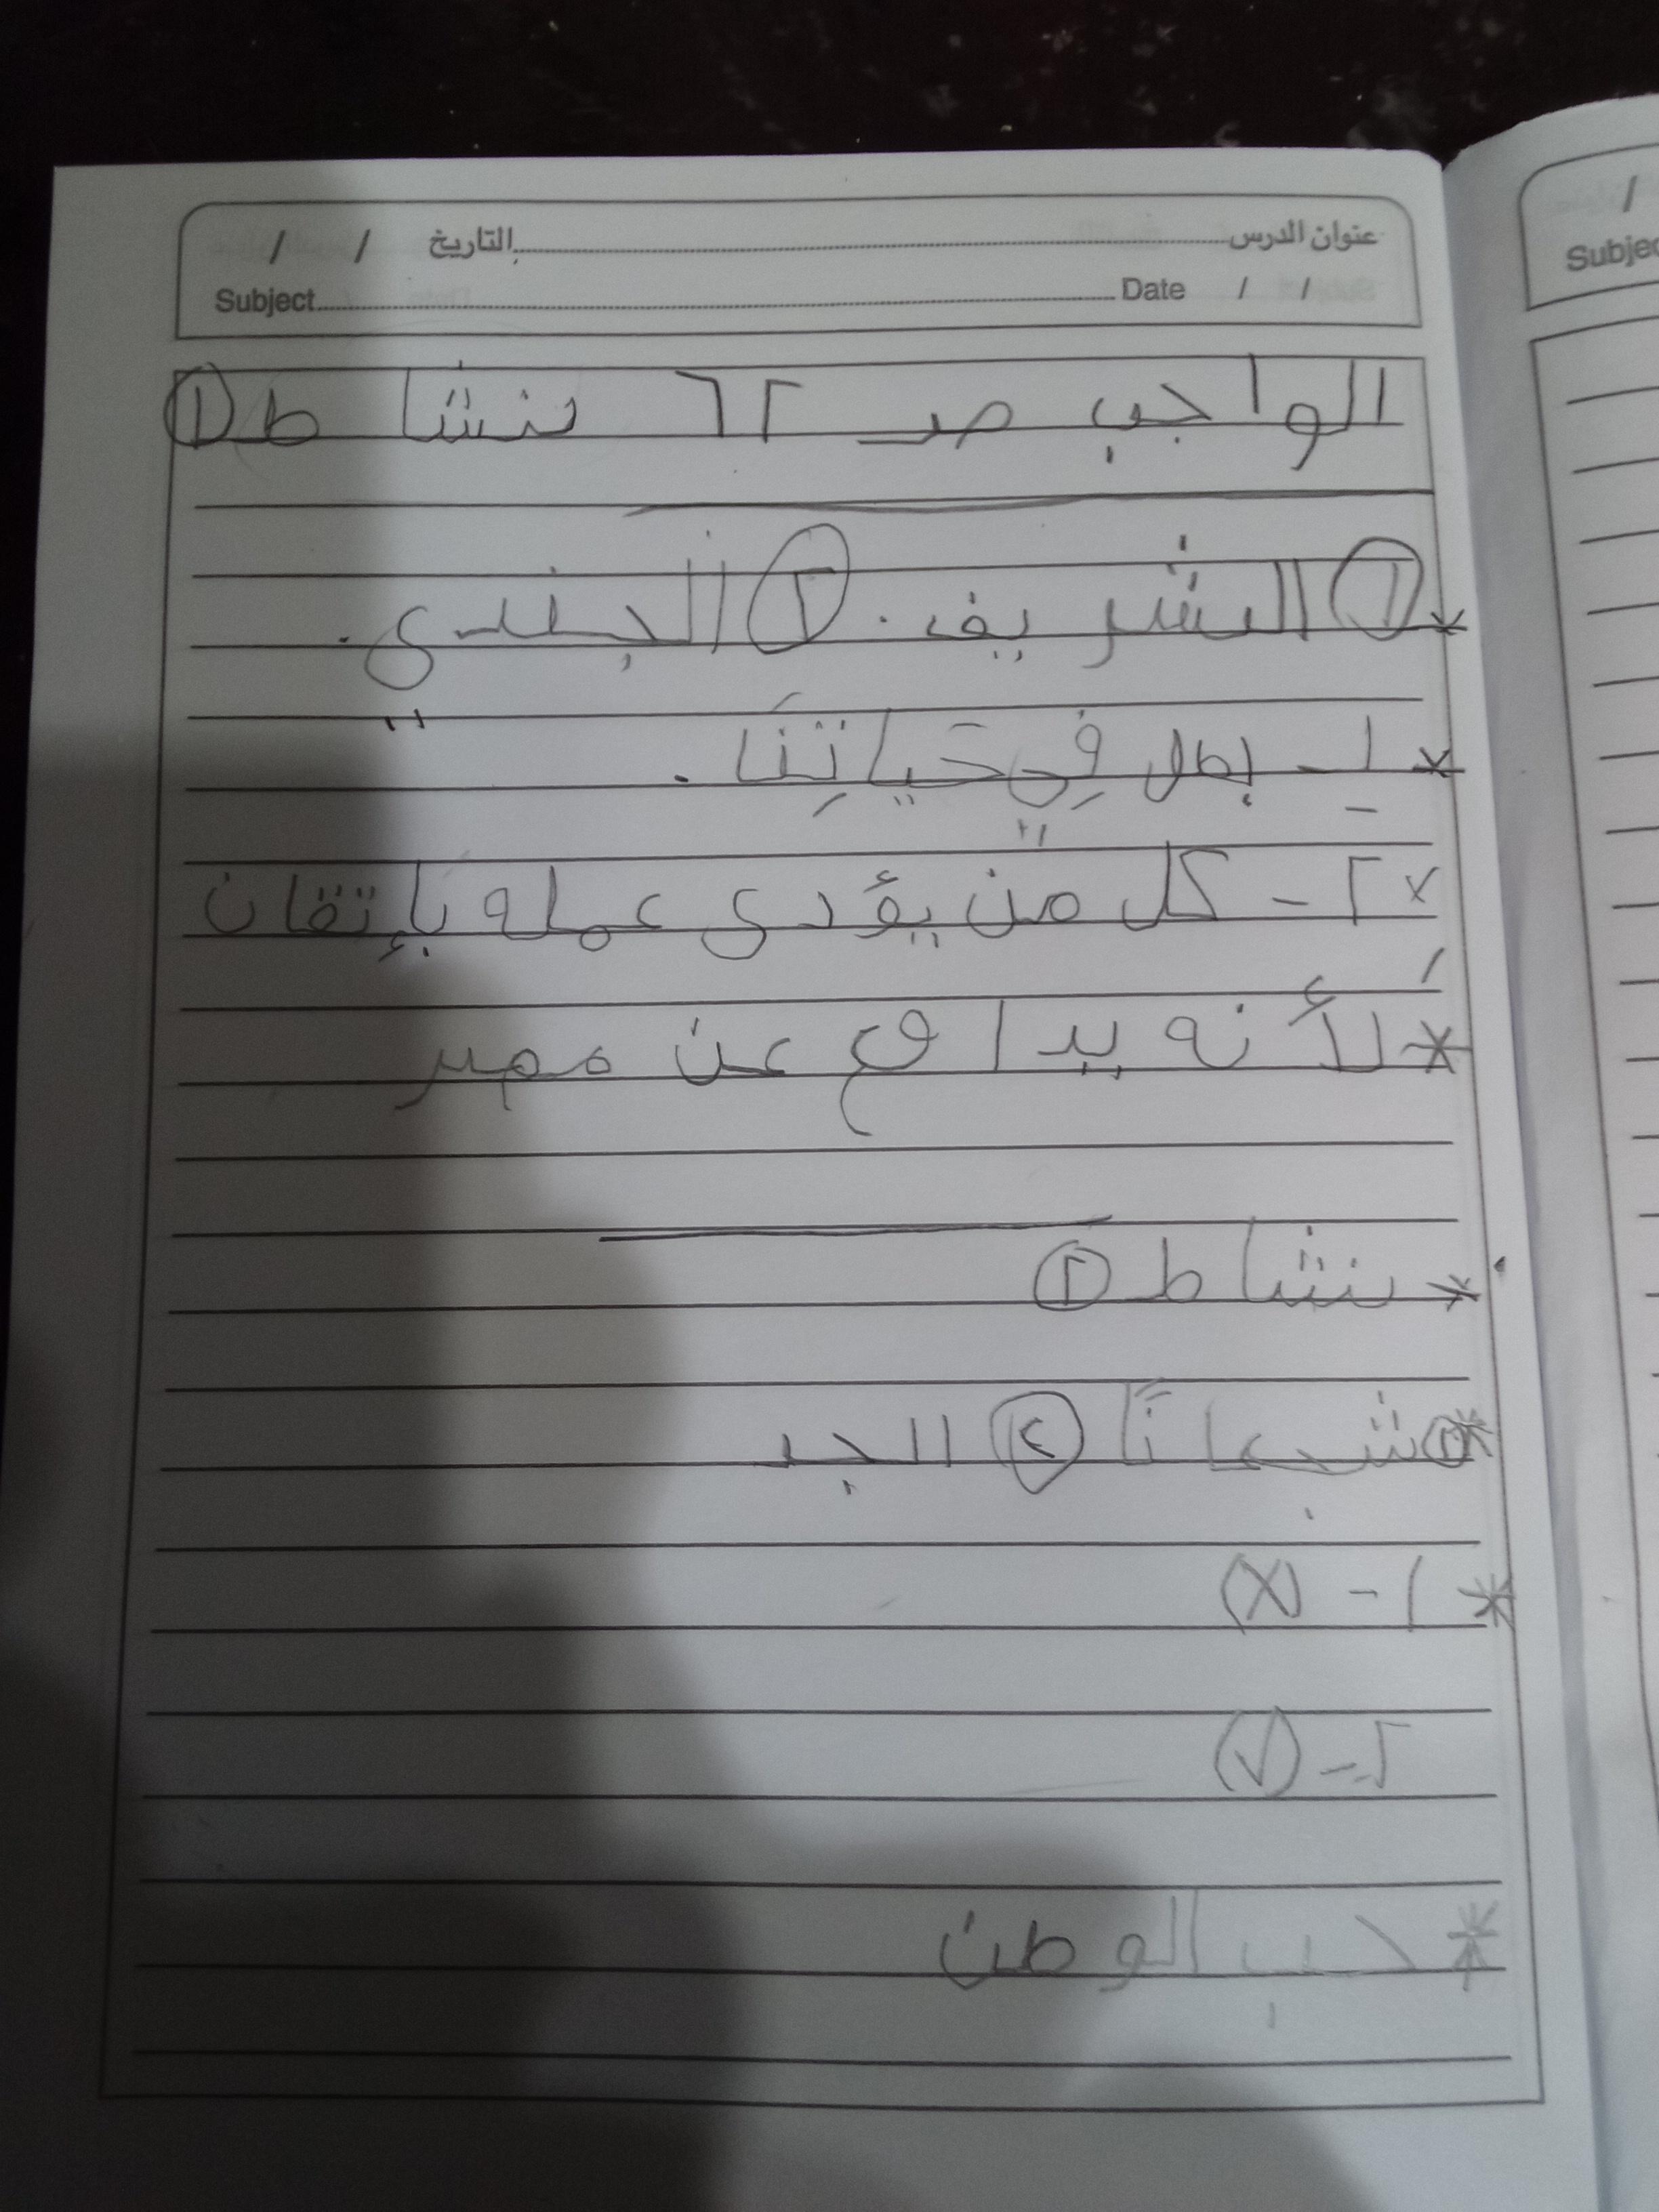 عنوان الدرس التاريخ / /
Subject Date / /
الواجب صـ ٦٢ نشاط ١
* ١ الشريف . ٢ الجندى .
* ١ - بطل فِي حَياتِنَا .
* ٢ - كل من يؤدى عمله بإتقان
* لأنه يدافع عن مصر
* نشاط ٢
* شبعانًا ٤ الجد
* ١ - (X)
٢ - (√)
* حب الوطن
/
Subje